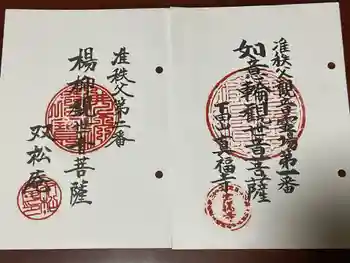 准秩父觀音霊場第一番
如意輪觀世音菩薩
下田山真福寺
准秩父第二番
楊柳觀世音菩薩
双松庵